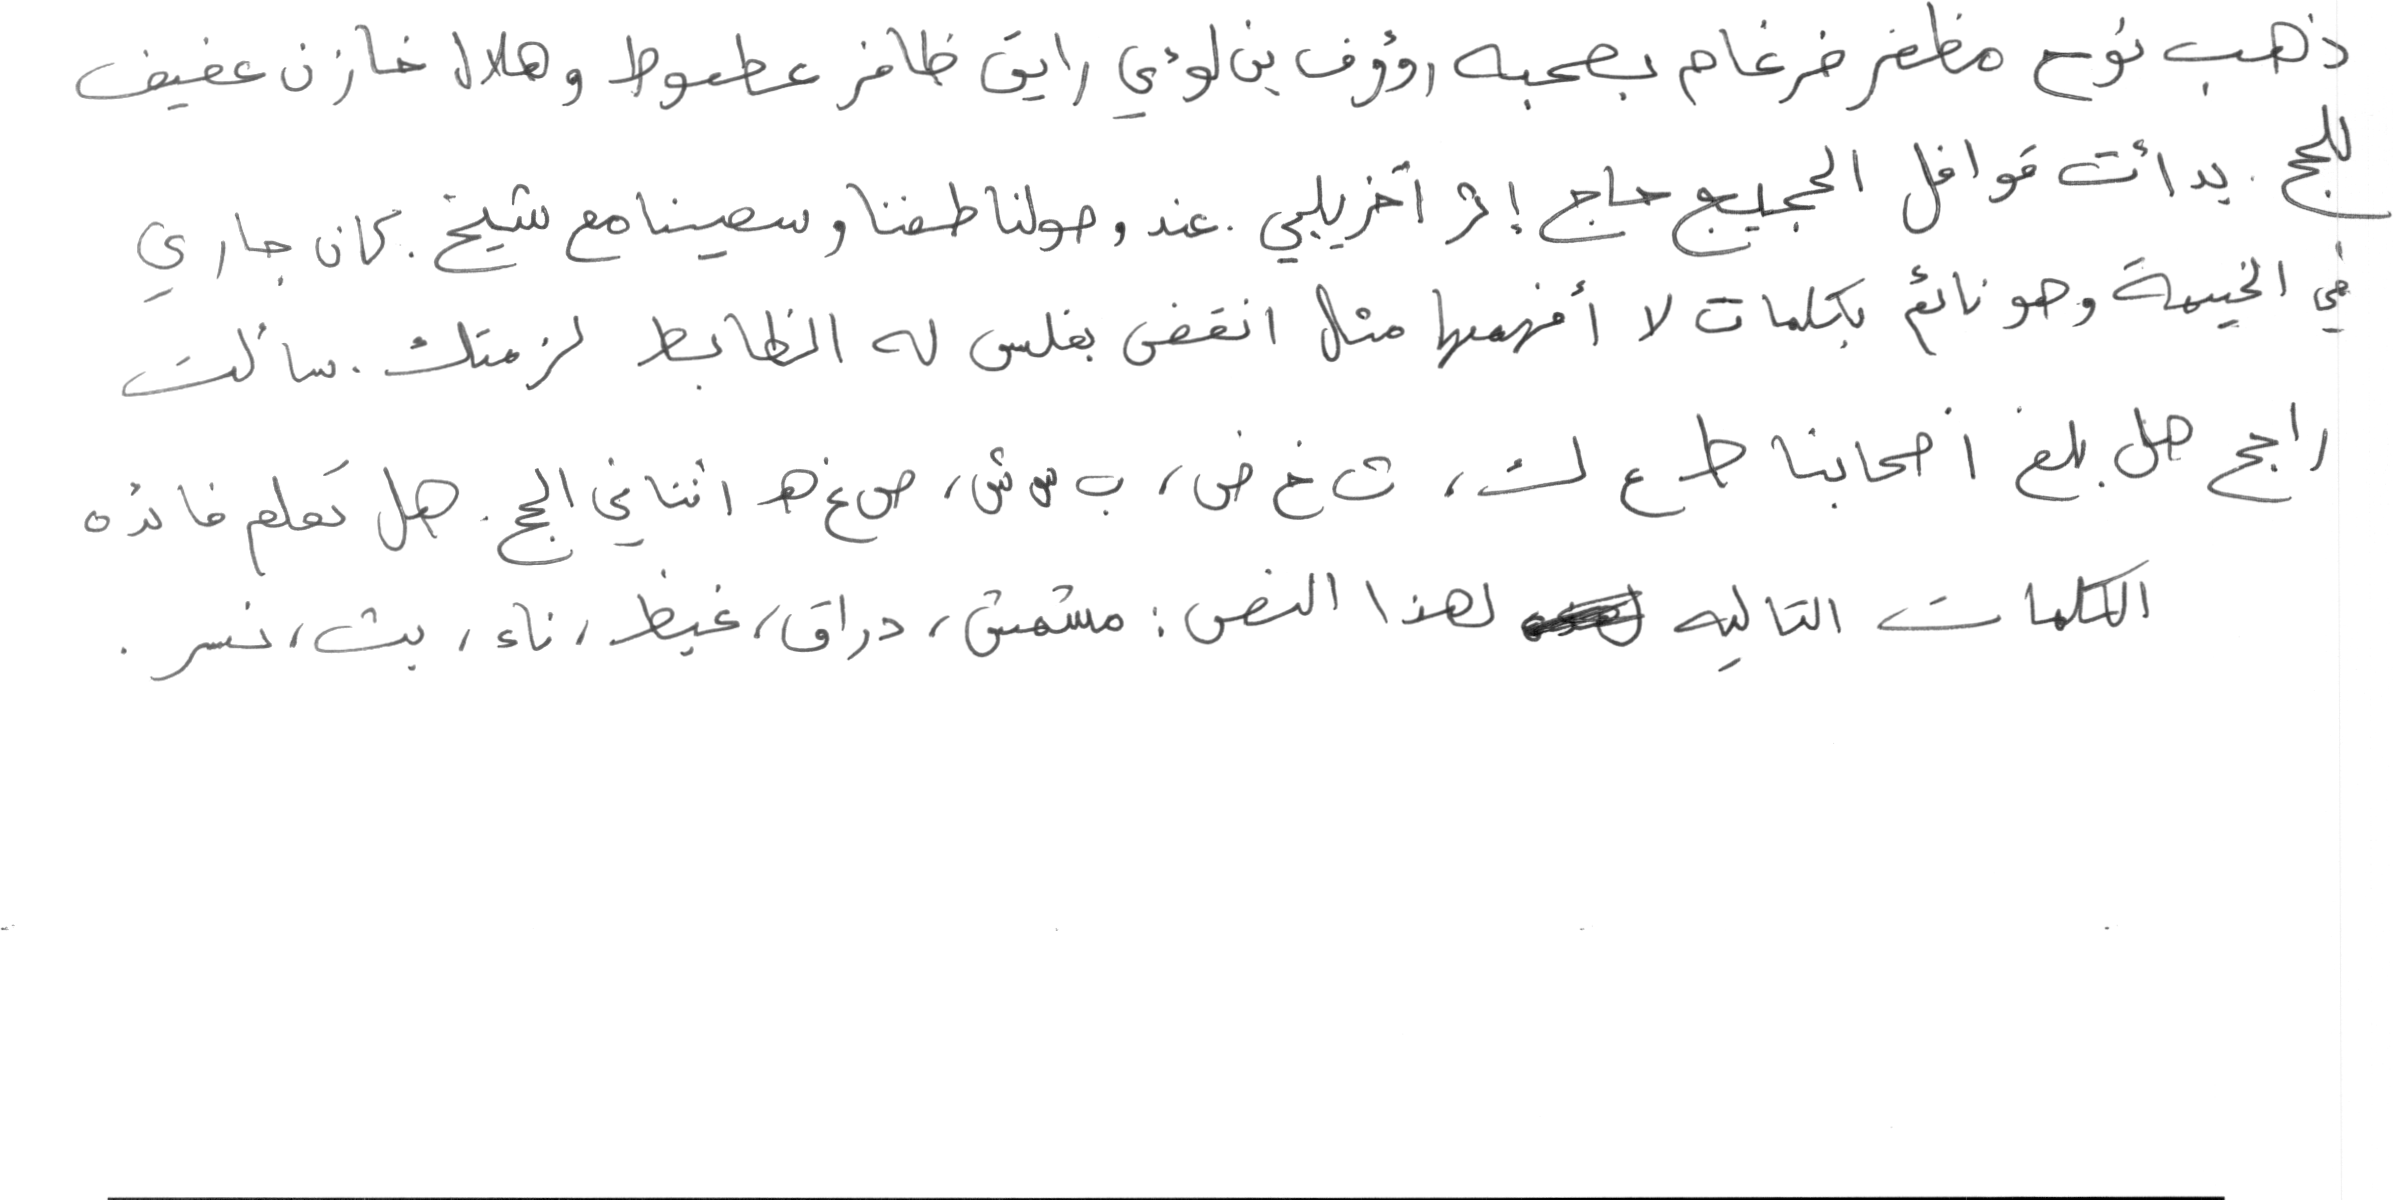 ذهب نوح مظفر ضرغام بصحبه رؤوف بن لؤي رايق ظافر عطعوط وهلال خازن عفيف
للحج. بدأت قوافل الحجيج حاج إثر آخر يلبي. عند وصولنا طفنا وسعينا مع شيخ. كان جاري
في الخيمة وهو نائم بكلمات لا أفهمها مثل انقض بغلس له الظابط لزمتك. سألت
راجح هل بلغ أصحابنا ط ع ك، ت خ ض، ب س ش، ص غ ه اثنا في الحج. هل تعلم فائده
الكلمات التاليه لهذا النص: مشمش، دراق، غيظ، ناء، بث، نسر.